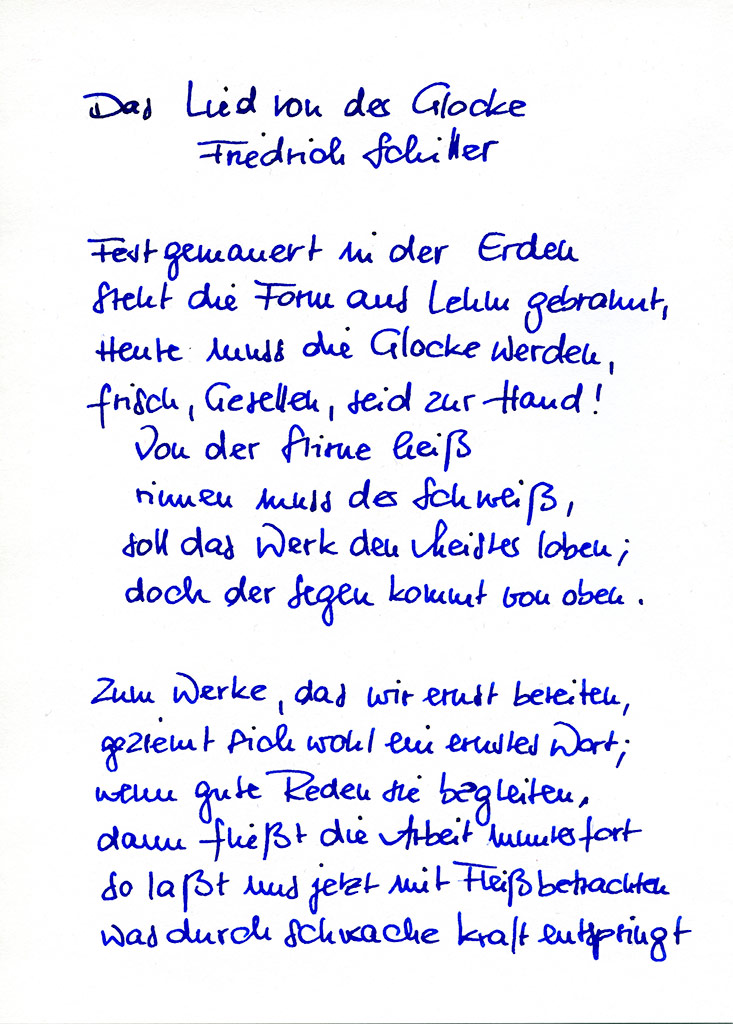 Das Lied von der Glocke
Friedrich Schiller
Fest gemauert in der Erden
steht die Form aus Lehm gebrannt,
Heute muss die Glocke werden,
frisch, Gesellen, seid zur Hand!
Von der Stirne heiß
rinnen muss der Schweiß,
soll das Werk den Meister loben;
doch der Segen kommt von oben.
Zum Werke, das wir ernst bereiten,
geziemt sich wohl ein ernstes Wort;
wenn gute Reden sie begleiten,
dann fließt die Arbeit munter fort
so laßt uns jetzt mit Fleiß betrachten
was durch schwache Kraft entspringt